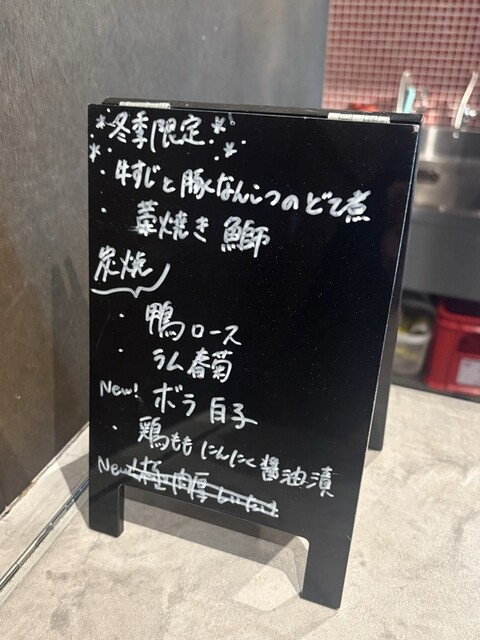 冬季限定
・牛すじと豚なんこつのどて煮
・藁焼き 鰤
炭焼
・鴨ロース
・ラム春菊
New! ボラ白子
・鶏ももにんにく醤油漬
New! 極 肉厚しいたけ